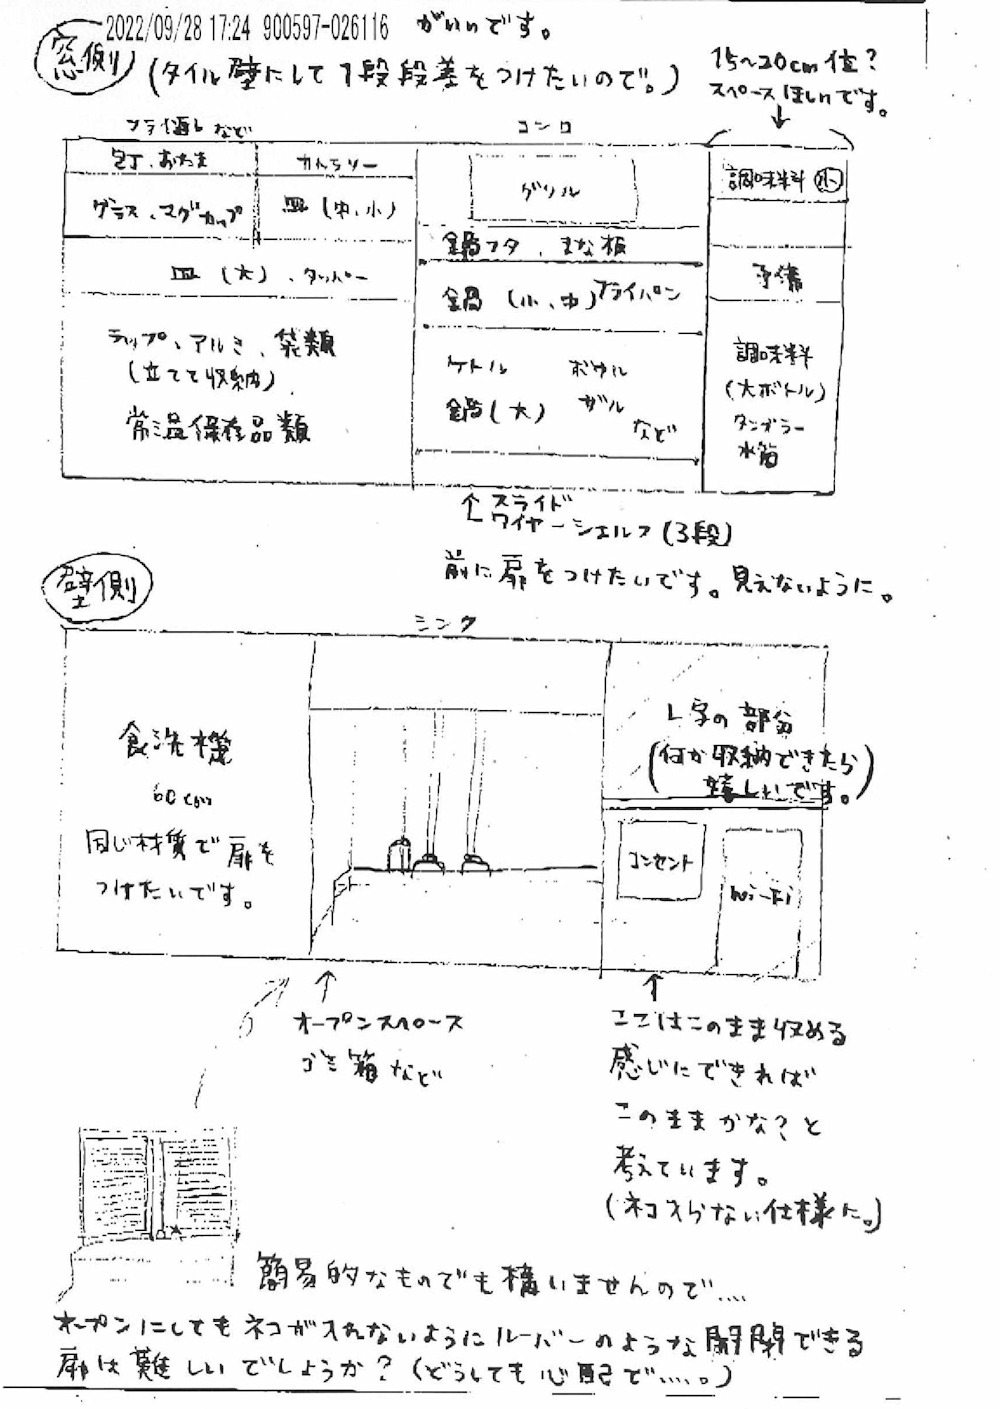 2022/09/28 17:24 900597-026116 がいいです。
窓側
(タイル壁にして1段段差をつけたいので。)
15~20cm位?
スペースほしいです。
フライ返しなど
コンロ
包丁、おたま
カトラリー
グリル
調味料 小
グラス、マグカップ
皿(中、小)
鍋フタ、まな板
皿(大)、タッパー
予備
鍋(小、中)フライパン
ラップ、アルミ、袋類
(立てて収納)
常温保存品類
ケトル ボウル
鍋(大) ザル
など
調味料
(大ボトル)
タンブラー
水筒
↑スライド
ワイヤーシェルフ(3段)
前に扉をつけたいです。見えないように。
壁側
シンク
食洗機
60cm
同じ材質で扉を
つけたいです。
L字の部分
(何か収納できたら
嬉しいです。)
コンセント
Wi-Fi
↑
オープンスペース
ゴミ箱など
↑
ここはこのまま収める
感じにできれば
このままかな?と
考えています。
(ネコ入らない仕様に。)
簡易的なものでも構いませんので....
オープンにしてもネコが入れないようにルーバーのような開閉できる
扉は難しいでしょうか?(どうしても心配で.....。)